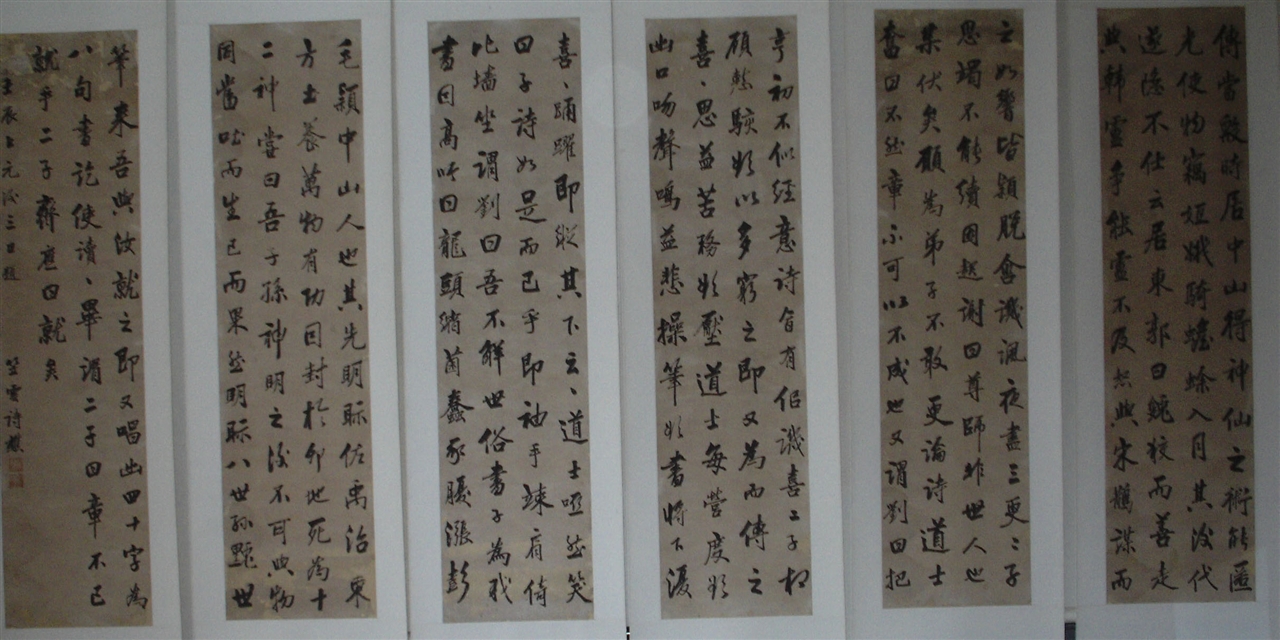 傳當殷時居中山得神仙之術能匿
光使物竊姮娥騎蟾蜍入月其後代
遂隱不仕云居東郭曰㕙狡而善走
與韓盧爭能盧不及怒與宋鵲謀而
之如響皆穎脫含譏諷夜盡三更二子
思竭不能續因起謝曰尊師非世人也
某伏矣願為弟子不敢更論詩道士
奮曰不然章不可以不成也又謂劉曰把
亨初不似經意詩旨有似譏喜二子相
顧慙駭欲以多窮之即又為而傳之
喜〻思益苦務欲壓道士每營度欲
出口吻聲鳴益悲操筆欲書將下復
喜〻踊躍即綴其下云〻道士啞然笑
曰子詩如是而已乎即袖手竦肩倚
北墻坐謂劉曰吾不解世俗書子為我
書因高吟曰龍頭縮菌蠢豕腹漲彭
毛穎中山人也其先明眎佐禹治東
方土養萬物有功因封於卯地死為十
二神嘗曰吾子孫神明之後不可與物
同當吐而生已而果然明眎八世孫䨲世
筆來吾與汝就之即又唱出四十字為
八句書訖使讀〻畢謂二子曰章不已
就乎二子齊應曰就矣
壬辰上元後三日題 笠雲詩